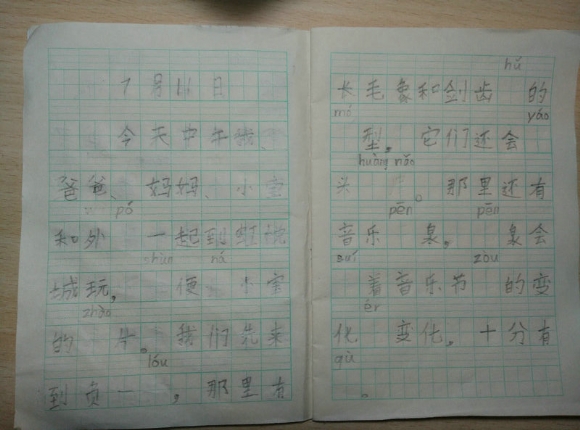 7号11日
今天中午我、
爸爸、妈妈、小宝
pó
和外 一起到虹悦
shùn ná
城玩，便 小宝
zhào
的 片。我们先来
lóu
到负一 ，那里有
hǔ
长毛象和剑齿 的
mó yáo
型，它们还会
huàng nǎo
头 。那里还有
pēn pēn
音乐 泉， 泉会
suí zòu
着音乐节 的变
ér
化 变化，十分有
qù
。